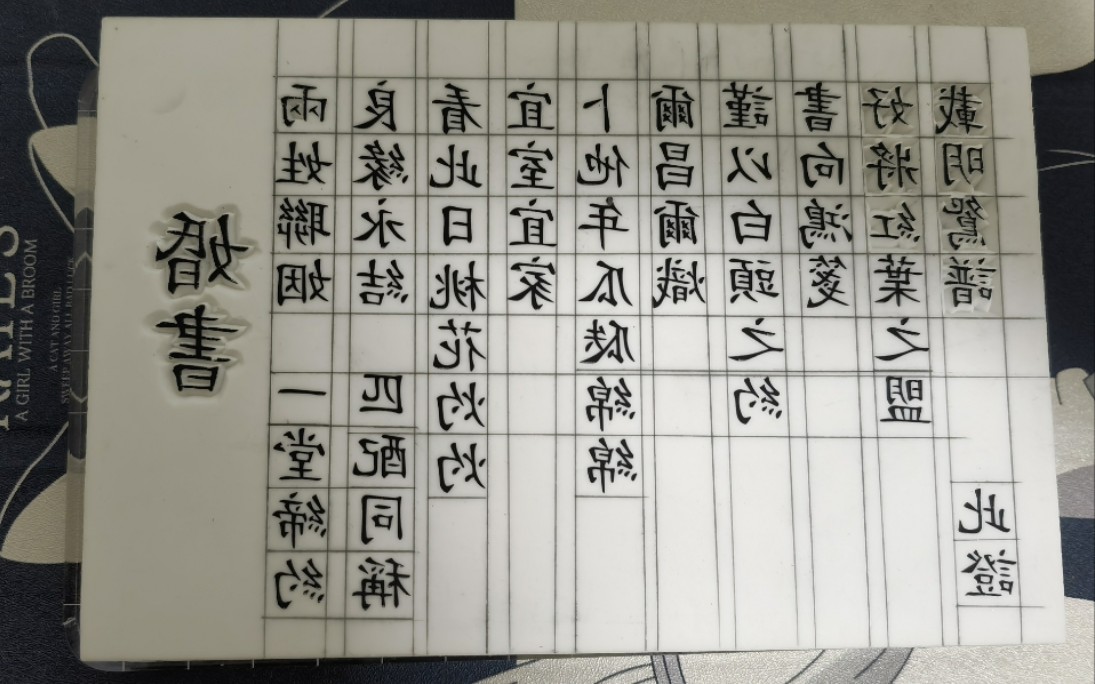 婚書
兩姓聯姻 一堂締約
良緣永結 匹配同稱
看此日桃花灼灼
宜室宜家
卜他年瓜瓞綿綿
爾昌爾熾
謹以白頭之約
書向鴻箋
好將紅葉之盟
載明鴛譜 此證
A GIRL WITH A BROOM
A CAT AND GIRL